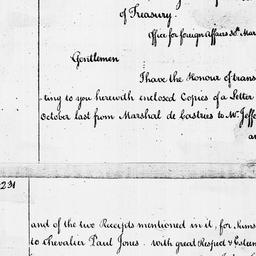 of Treasury.
Office for foreign Affairs 3d. Mar
Gentlemen
I have the Honour of trans
-ting to you herewith enclosed Copies of a Letter
October last from Marshal de Castries to Mr. Jeffe
an
231
and of the two Receipts mentioned in it, for Sums
to Chevalier Paul Jones. with great Respect & Esteem